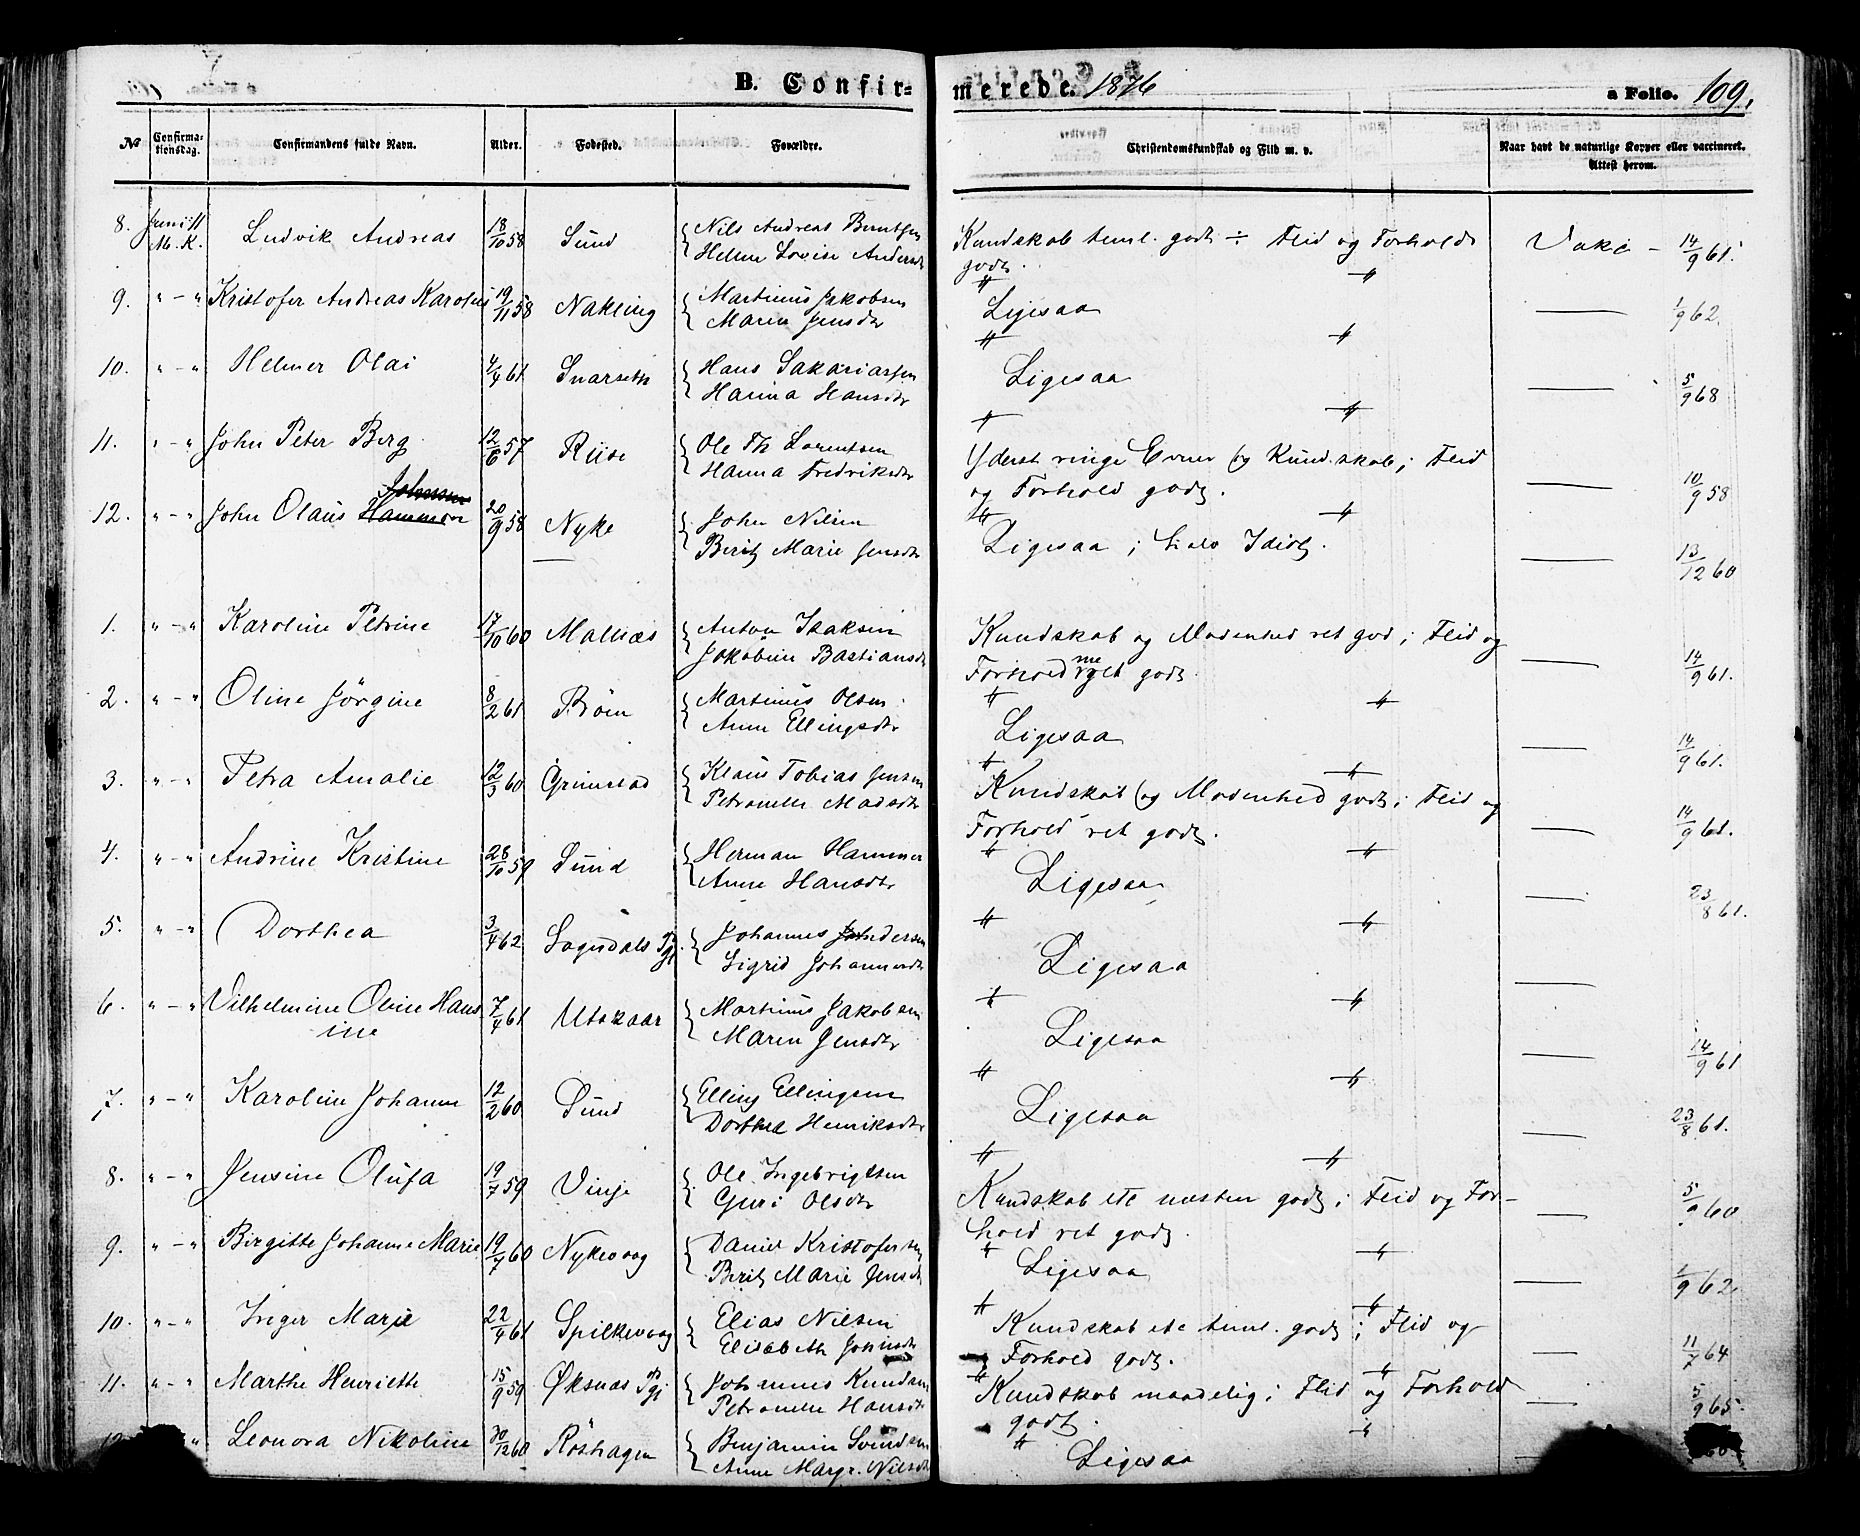 B. Confir-
merede. 1876
a Folio. 109.
No
Confirma-
tionsdag.
Confirmandens fulde Navn.
Alder.
Fødested.
Forældre.
Christendomskundskab og Flid m. v.
Naar havt de naturlige Kopper eller vaccineret.
Attest herom.
8. Juni 11 M. K. Ludvik Andreas 18/10 58 Sund { Nils Andreas Berntsen
Helene Lovise Andersdt
Kundskab teml. godt ÷ Flid og Forhold
godt.
Vake - 14/9 61.
9. " - " Kristofer Andreas Karolius 19/11 58 Nakling { Martinus Jakobsen
Maren Jensdtr
Ligesaa
— 1/9 62.
10. " - " Helmer Olai 4/4 61 Snarseth { Hans Sakariassen
Hanna Hansdtr
Ligesaa
— 5/9 68
11. " - " John Peter Berg 12/6 57 Riise { Ole Th Lorentsen
Hanna Fredriksdtr
Yderst ringe Evner og Kundskab; Flid
og Forhold godt.
— 10/9 58
12. " - " John Olaus Hammer Johnsen 20/9 58 Nyke { John Nilsen
Berit Marie Jensdtr
Ligesaa; halv Idiot.
— 13/12 60
1. " - " Karoline Petrine 17/10 60 Malnæs { Anton Isaksen
Jakobine Bastiansdt
Kundskab og Modenhed ret god; Flid og
Forhold meget godt.
— 14/9 61.
2. " - " Oline Jørgine 8/2 61 Bøen { Martinus Olsen
Anne Ellingsdtr
Ligesaa
— 14/9 61.
3. " - " Petra Amalie 12/3 60 Grimstad { Klaus Tobias Jensen
Petronelle Madsdtr
Kundskab og Modenhed godt; Flid og
Forhold ret godt.
— 14/9 61.
4. " - " Andrine Kristine 28/10 59 Sund { Herman Hammer
Anne Hansdtr
Ligesaa
— 23/8 61.
5. " - " Dorthea 3/4 62 Sognedals Pgj. { Johannes Andersen
Sigrid Johannesdtr
Ligesaa
—
6. " - " Vilhelmine Oline Hans
ine 7/4 61 Utskaar { Martinus Jakobsen
Maren Jensdtr
Ligesaa
— 14/9 61
7. " - " Karoline Johanne 12/2 60 Sund { Elling Ellingsen
Dorthea Henriksdtr
Ligesaa
— 23/8 61.
8. " - " Jensine Olufa 19/7 59 Vinje { Ole Ingebrigtsen
Guri Olsdtr
Kundskab etc næsten godt; Flid og For-
hold ret godt.
— 5/9 60
9. " - " Birgitte Johanne Marie 19/7 60 Nykevaag { Daniel Kristofersen
Berit Marie Jensdt
Ligesaa
— 1/9 62
10. " - " Inger Marie 22/4 61 Spilkevaag { Elias Nilsen
Elisabeth Johnsdtr
Kundskab etc teml. godt; Flid og
Forhold godt.
— 11/7 64
11. " - " Marthe Henriette 15/9 59 Øksnæs Pgj { Johannes Knudsen
Petronelle Hansdtr
Kundskab maadelig; Flid og Forhold
godt.
— 5/9 65
Leonora Nikoline 30/12 60 Røshagen { Benjamin Svendsen
Anne Margr. Nilsdtr
Ligesaa